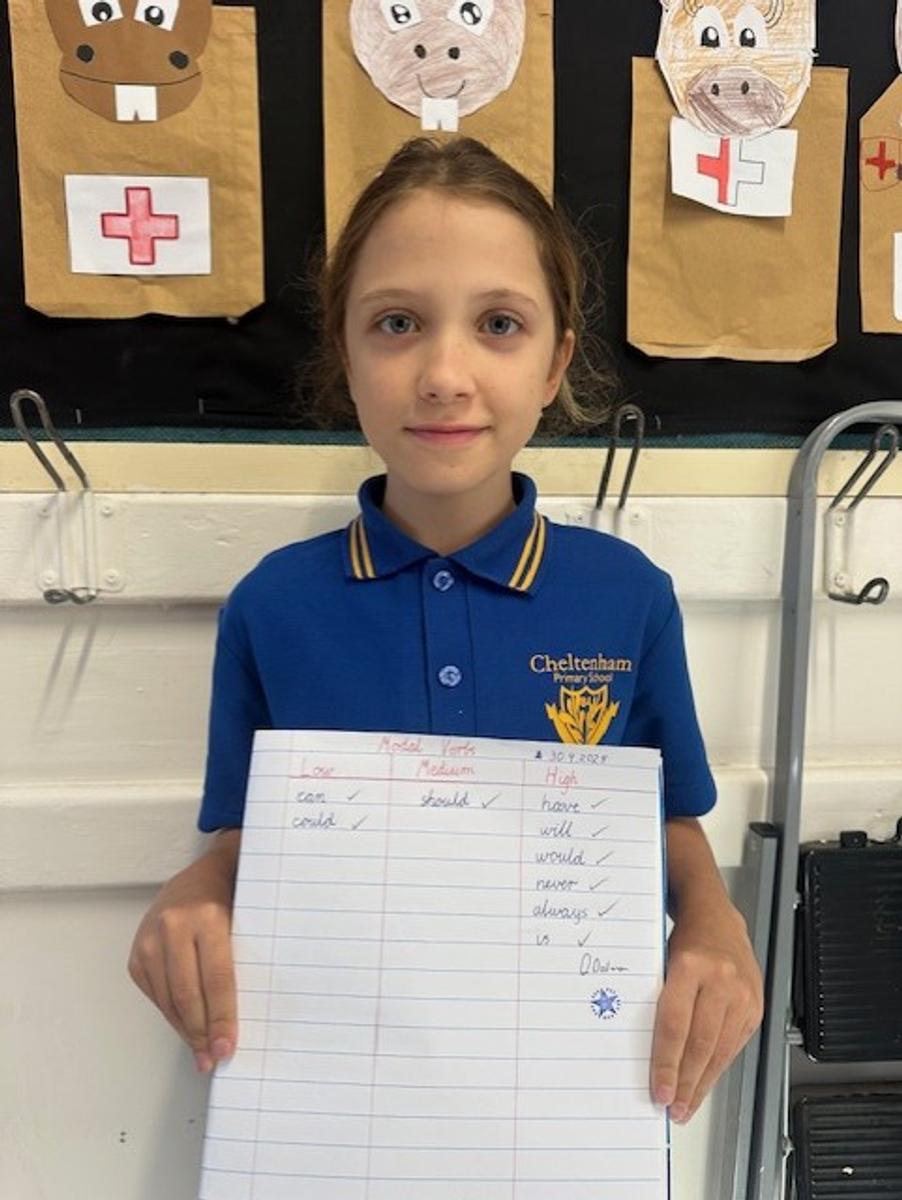 Cheltenham
Primary School
Modal Verbs
30.9.2024
Low Medium High
can ✓ should ✓ have ✓
could ✓ will ✓
would ✓
never ✓
always ✓
is ✓